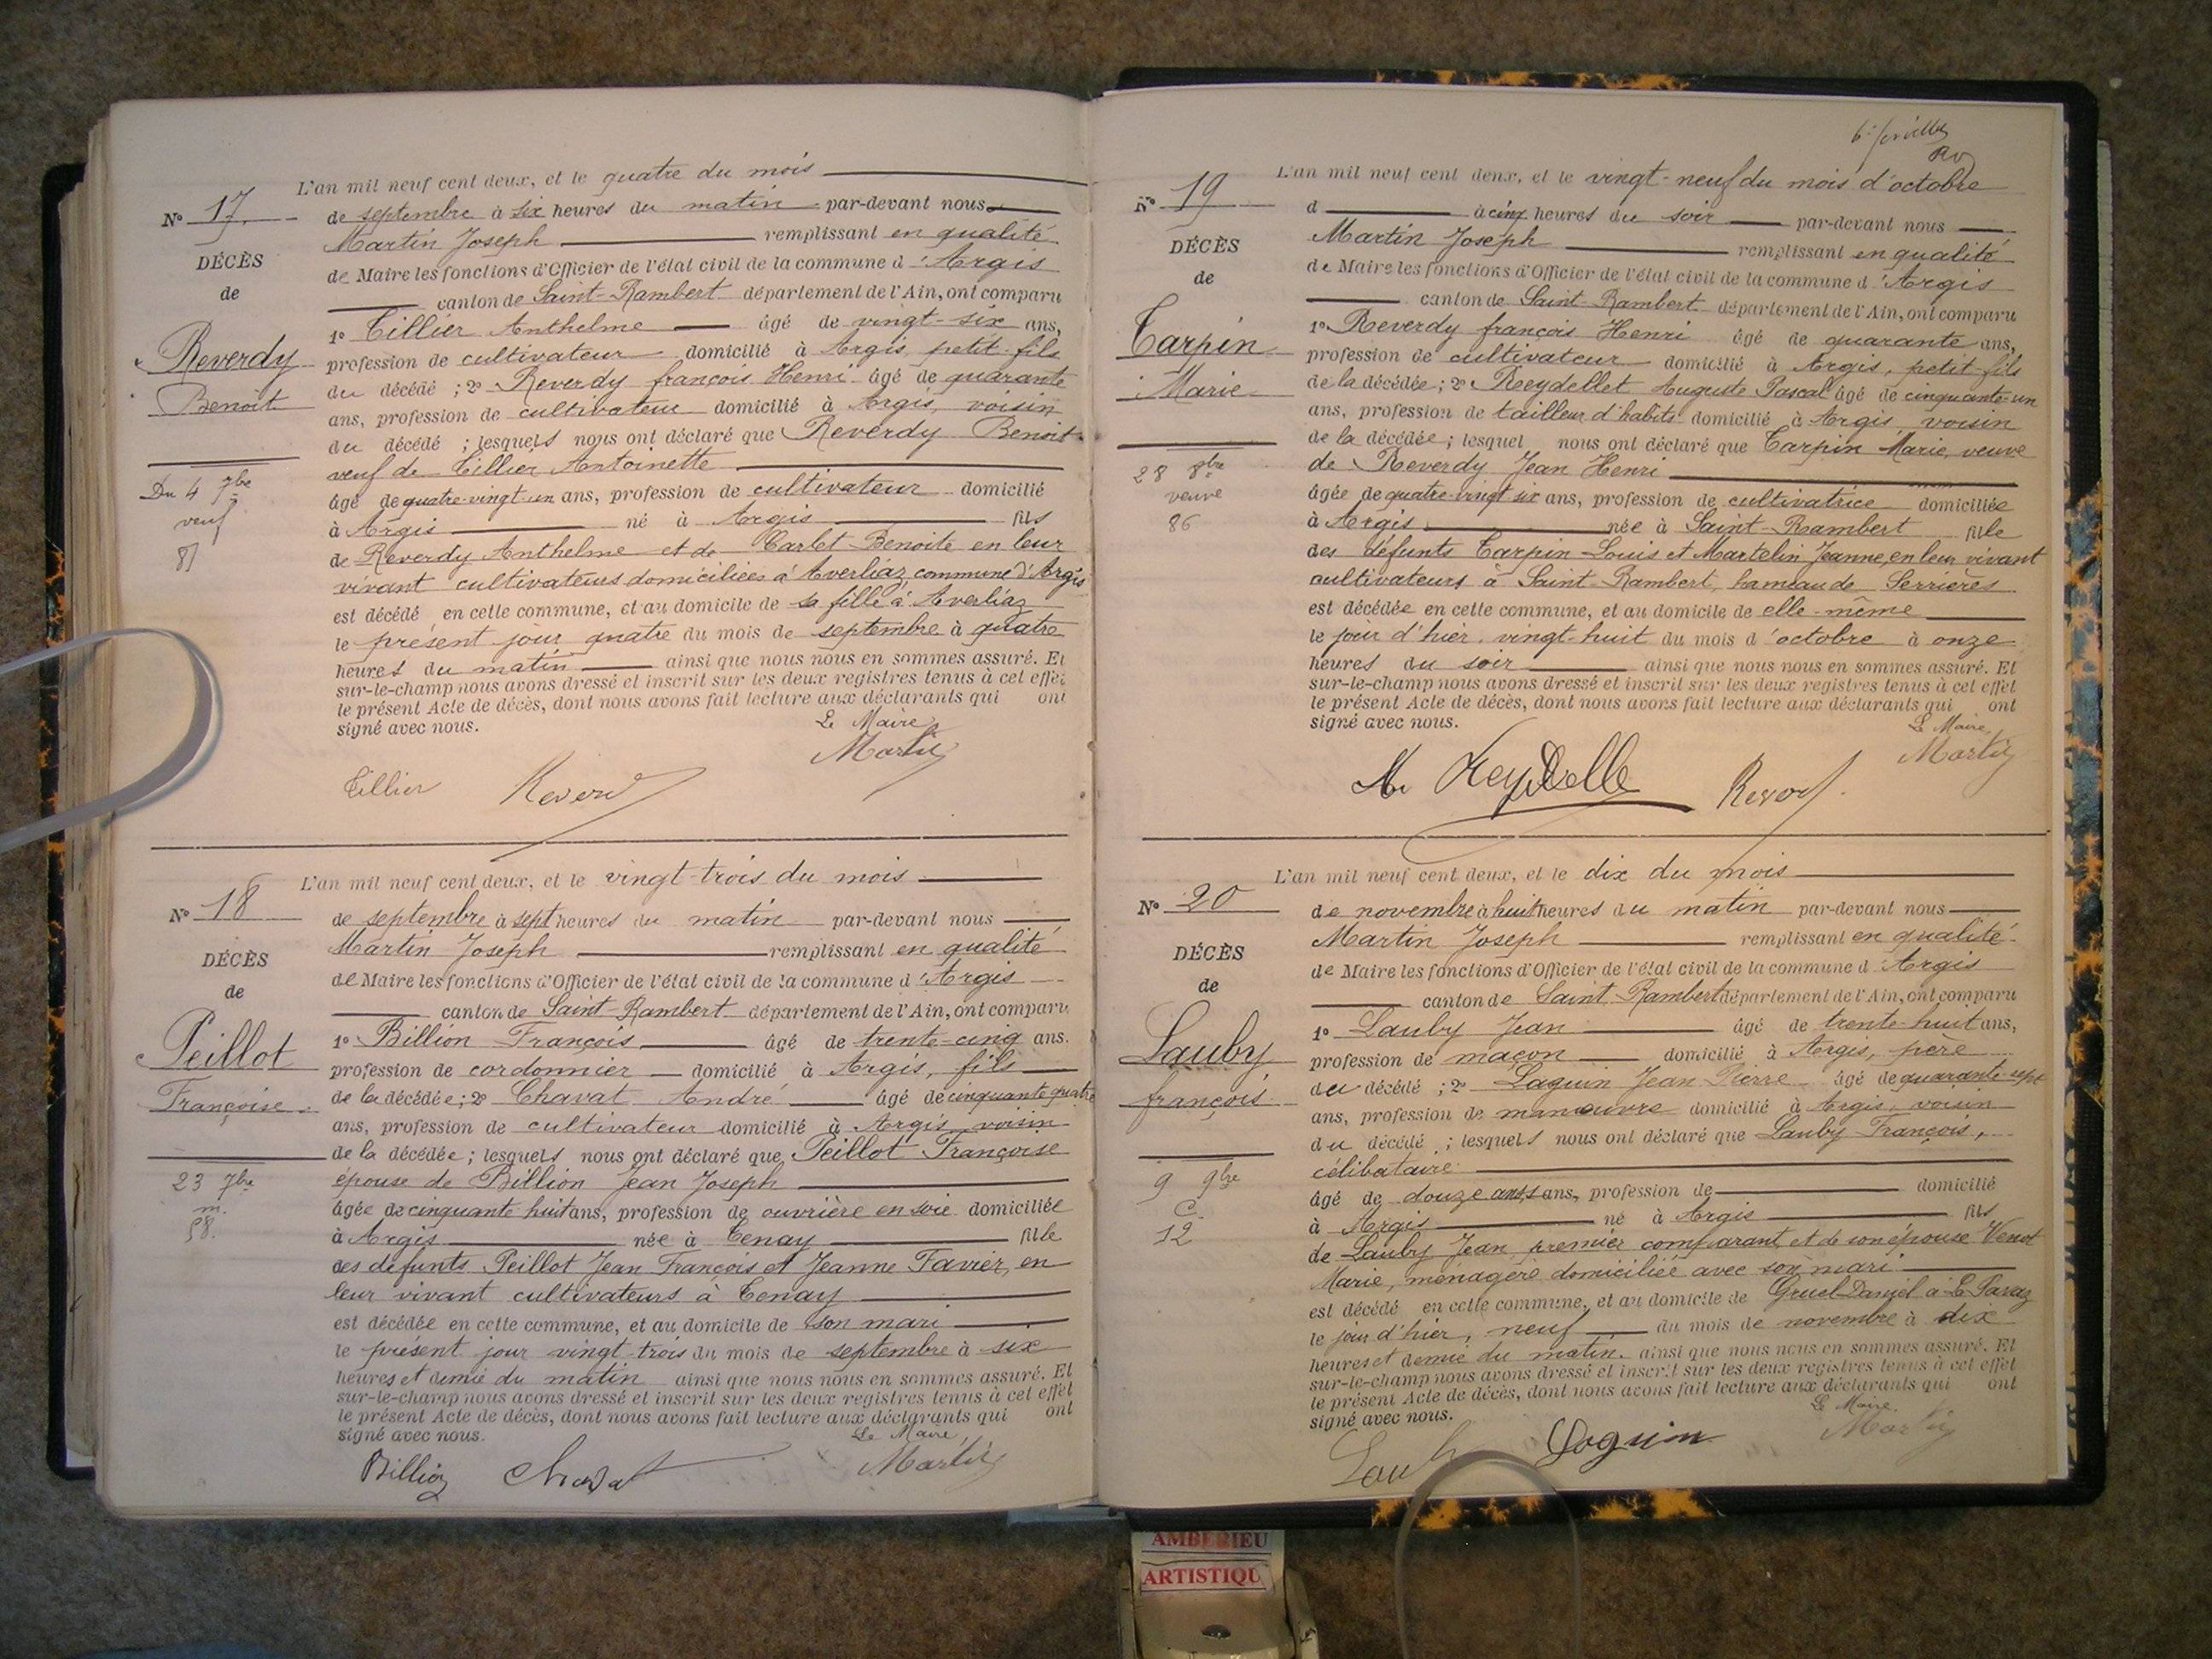 L'an mil neuf cent deux, et le quatre du mois
N° 17
de septembre à six heures du matin par-devant nous
Martin Joseph remplissant en qualité
DÉCÈS
de Maire les fonctions d'Officier de l'état civil de la commune d'Argis
de
canton de Saint-Rambert département de l'Ain, ont comparu
1° Tillier Anthelme âgé de vingt-six ans,
Reverdy
profession de cultivateur domicilié à Argis, petit-fils
du décédé ; 2° Reverdy françois Henri âgé de quarante
Benoit
ans, profession de cultivateur domicilié à Argis, voisin
du décédé ; lesquels nous ont déclaré que Reverdy Benoit
veuf de Tillier Antoinette
Du 4 7bre
âgé de quatre-vingt-un ans, profession de cultivateur domicilié
veuf
à Argis né à Argis fils
81
de Reverdy Anthelme et de Carlet Benoite en leur
vivant cultivateurs domiciliées à Averliaz, commune d'Argis
est décédé en cette commune, et au domicile de sa fille à Averliaz
le présent jour quatre du mois de septembre à quatre
heures du matin ainsi que nous nous en sommes assuré. Et
sur-le-champ nous avons dressé et inscrit sur les deux registres tenus à cet effet
le présent Acte de décès, dont nous avons fait lecture aux déclarants qui ont
signé avec nous. Le Maire,
Martin
Tillier Reverdy
L'an mil neuf cent deux, et le vingt-trois du mois
N° 18
de septembre à sept heures du matin par-devant nous
Martin Joseph remplissant en qualité
DÉCÈS
de Maire les fonctions d'Officier de l'état civil de la commune d'Argis
de
canton de Saint-Rambert département de l'Ain, ont comparu
1° Billion François âgé de trente-cinq ans.
Peillot
profession de cordonnier domicilié à Argis, fils
Françoise
de la décédée ; 2° Chavat André âgé de cinquante quatre
ans, profession de cultivateur domicilié à Argis voisin
de la décédée ; lesquels nous ont déclaré que Peillot Françoise
23 7bre
épouse de Billion Jean Joseph
m.
âgée de cinquante huit ans, profession de ouvrière en soie domiciliée
58.
à Argis née à Tenay fille
des défunts Peillot Jean François et Jeanne Favier, en
leur vivant cultivateurs à Tenay
est décédée en cette commune, et au domicile de son mari
le présent jour vingt-trois du mois de septembre à six
heures et demie du matin ainsi que nous nous en sommes assuré. Et
sur-le-champ nous avons dressé et inscrit sur les deux registres tenus à cet effet
le présent Acte de décès, dont nous avons fait lecture aux déclarants qui ont
signé avec nous. Le Maire,
Billion Chavat Martin
L'an mil neuf cent deux, et le vingt-neuf du mois d'octobre
N° 19
d à cinq heures du soir par-devant nous
Martin Joseph remplissant en qualité
DÉCÈS
de Maire les fonctions d'Officier de l'état civil de la commune d'Argis
de
canton de Saint-Rambert département de l'Ain, ont comparu
1° Reverdy françois Henri âgé de quarante ans,
Tarpin
profession de cultivateur domicilié à Argis, petit-fils
Marie
de la décédée ; 2° Reydellet Auguste Pascal âgé de cinquante-un
ans, profession de tailleur d'habits domicilié à Argis, voisin
de la décédée ; lesquel nous ont déclaré que Tarpin Marie, veuve
28 8bre
de Reverdy Jean Henri
veuve
âgée de quatre-vingt six ans, profession de cultivatrice domiciliée
86
à Argis née à Saint-Rambert fille
des défunts Tarpin Louis et Martelin Jeanne, en leur vivant
cultivateurs à Saint-Rambert, hameau de Serrières
est décédée en cette commune, et au domicile de elle-même
le jour d'hier, vingt-huit du mois d'octobre à onze
heures du soir ainsi que nous nous en sommes assuré. Et
sur-le-champ nous avons dressé et inscrit sur les deux registres tenus à cet effet
le présent Acte de décès, dont nous avons fait lecture aux déclarants qui ont
signé avec nous. Le Maire,
Martin
Reverdy
L'an mil neuf cent deux, et le dix du mois
N° 20
de novembre à huit heures du matin par-devant nous
Martin Joseph remplissant en qualité
DÉCÈS
de Maire les fonctions d'Officier de l'état civil de la commune d'Argis
de
canton de Saint-Rambert département de l'Ain, ont comparu
1° Lauby Jean âgé de trente-huit ans,
Lauby
profession de maçon domicilié à Argis, père
françois
du décédé ; 2° Laguin Jean Pierre âgé de quarante-sept
ans, profession de manœuvre domicilié à Argis, voisin
du décédé ; lesquels nous ont déclaré que Lauby François,
9 9bre
célibataire
C.
âgé de douze ans, ans, profession de domicilié
12
à Argis né à Argis fils
de Lauby Jean premier comparant, et de son épouse Venot
Marie, ménagère domiciliée avec son mari
est décédé en cette commune, et au domicile de Gruel Daniel à
le jour d'hier, neuf du mois de novembre à dix
heures et demie du matin. ainsi que nous nous en sommes assuré. Et
sur-le-champ nous avons dressé et inscrit sur les deux registres tenus à cet effet
le présent Acte de décès, dont nous avons fait lecture aux déclarants qui ont
signé avec nous. Le Maire.
Lauby Laguin Martin
AMBERIEU
ARTISTIQU